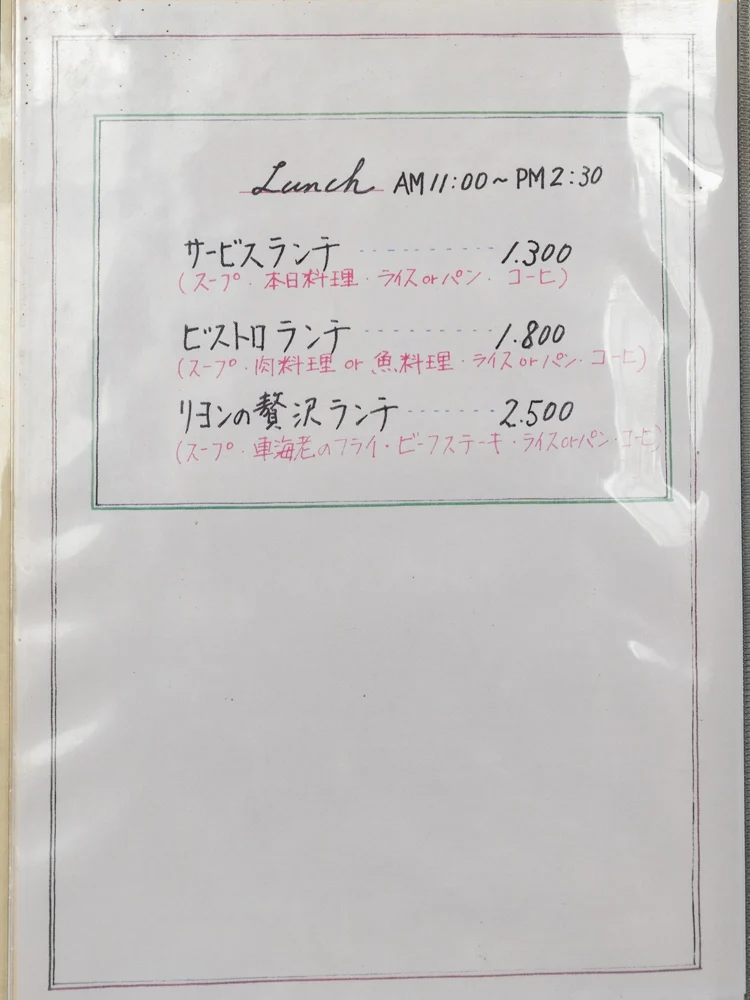 Lunch AM 11:00~PM 2:30
サービスランチ ------------ 1.300
(スープ・本日料理・ライスorパン・コーヒ)
ビストロランチ ------------ 1.800
(スープ・肉料理or魚料理・ライスorパン・コーヒ)
リヨンの贅沢ランチ ------- 2.500
(スープ・車海老のフライ・ビーフステーキ・ライスorパン・コーヒ)